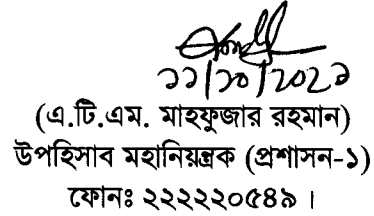 ১১/১০/২০২১
(এ.টি.এম. মাহফুজার রহমান)
উপহিসাব মহানিয়ন্ত্রক (প্রশাসন-১)
ফোনঃ ২২২২২০৫৪৯ ।